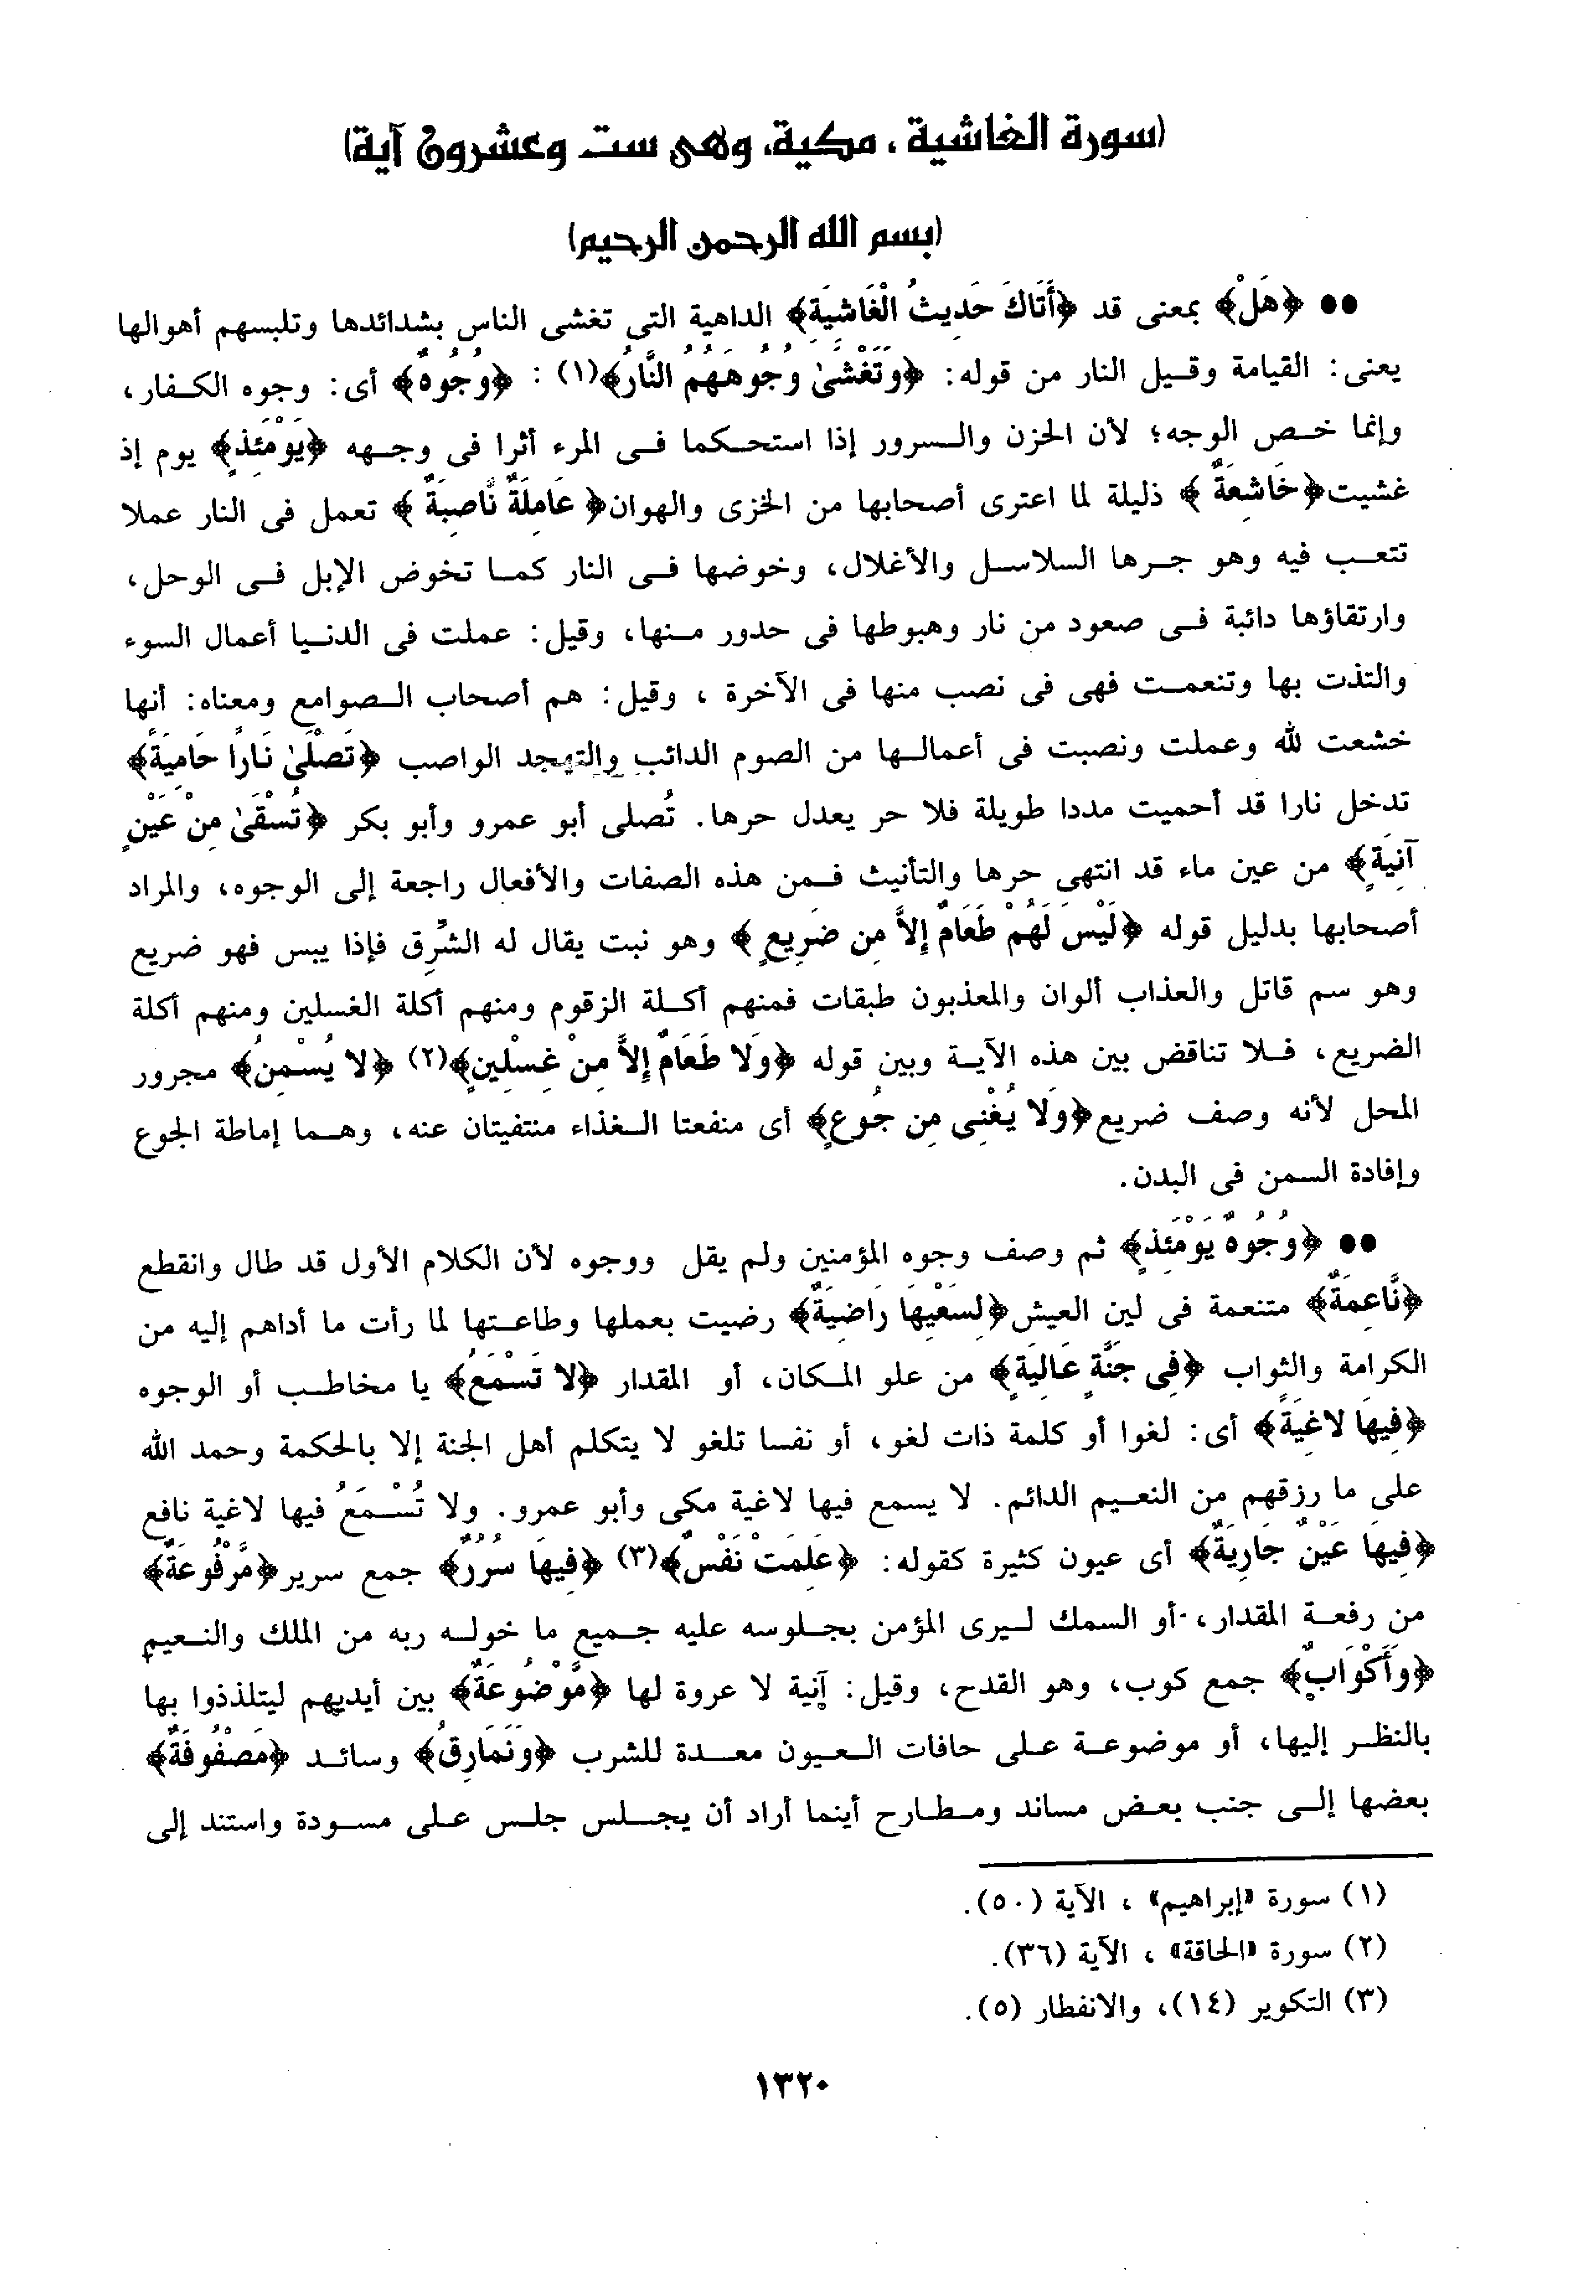 (سورة الغاشية ، مكية، وهى ست وعشرون آية)
(بسم الله الرحمن الرحيم)
●● ﴿هَلْ﴾ بمعنى قد ﴿أَتَاكَ حَدِيثُ الْغَاشِيَةِ﴾ الداهية التى تغشى الناس بشدائدها وتلبسهم أهوالها
يعنى: القيامة وقيل النار من قوله: ﴿وَتَغْشَىٰ وُجُوهَهُمُ النَّارُ﴾(١) : ﴿وُجُوهٌ﴾ أى: وجوه الكفار،
وإنما خص الوجه؛ لأن الحزن والسرور إذا استحكما فى المرء أثرا فى وجهه ﴿يَوْمَئِذٍ﴾ يوم إذ
غشيت﴿خَاشِعَةٌ ﴾ ذليلة لما اعترى أصحابها من الخزى والهوان﴿ عَامِلَةٌ نَّاصِبَةٌ ﴾ تعمل فى النار عملا
تتعب فيه وهو جرها السلاسل والأغلال، وخوضها فى النار كما تخوض الإبل فى الوحل،
وارتقاؤها دائبة فى صعود من نار وهبوطها فى حدور منها، وقيل: عملت فى الدنيا أعمال السوء
والتذت بها وتنعمت فهى فى نصب منها فى الآخرة ، وقيل: هم أصحاب الصوامع ومعناه: أنها
خشعت لله وعملت ونصبت فى أعمالها من الصوم الدائب والتهجد الواصب ﴿تَصْلَىٰ نَارًا حَامِيَةً﴾
تدخل نارا قد أحميت مددا طويلة فلا حر يعدل حرها. تُصلى أبو عمرو وأبو بكر ﴿تُسْقَىٰ مِنْ عَيْنٍ
آنِيَةٍ﴾ من عين ماء قد انتهى حرها والتأنيث فمن هذه الصفات والأفعال راجعة إلى الوجوه، والمراد
أصحابها بدليل قوله ﴿لَيْسَ لَهُمْ طَعَامٌ إِلاَّ مِن ضَرِيعٍ ﴾ وهو نبت يقال له الشِّرِق فإذا يبس فهو ضريع
وهو سم قاتل والعذاب ألوان والمعذبون طبقات فمنهم أكلة الزقوم ومنهم أكلة الغسلين ومنهم أكلة
الضريع، فلا تناقض بين هذه الآية وبين قوله ﴿وَلا طَعَامٌ إِلاَّ مِنْ غِسْلِينٍ﴾(٢) ﴿لا يُسْمِنُ﴾ مجرور
المحل لأنه وصف ضريع﴿وَلا يُغْنِى مِن جُوعٍ﴾ أى منفعتا الغذاء منتفيتان عنه، وهما إماطة الجوع
وإفادة السمن فى البدن.
●● ﴿وُجُوهٌ يَوْمَئِذٍ﴾ ثم وصف وجوه المؤمنين ولم يقل ووجوه لأن الكلام الأول قد طال وانقطع
﴿نَّاعِمَةٌ﴾ متنعمة فى لين العيش﴿لِسَعْيِهَا رَاضِيَةٌ﴾ رضيت بعملها وطاعتها لما رأت ما أداهم إليه من
الكرامة والثواب ﴿فِى جَنَّةٍ عَالِيَةٍ﴾ من علو المكان، أو المقدار ﴿لا تَسْمَعُ﴾ يا مخاطب أو الوجوه
﴿فِيهَا لاغِيَةً﴾ أى: لغوا أو كلمة ذات لغو، أو نفسا تلغو لا يتكلم أهل الجنة إلا بالحكمة وحمد الله
على ما رزقهم من النعيم الدائم. لا يسمع فيها لاغية مكى وأبو عمرو. ولا تُسْمَعُ فيها لاغية نافع
﴿فِيهَا عَيْنٌ جَارِيَةٌ﴾ أى عيون كثيرة كقوله: ﴿عَلِمَتْ نَفْسٌ﴾(٣) ﴿فِيهَا سُرُرٌ﴾ جمع سرير﴿مَّرْفُوعَةٌ﴾
من رفعة المقدار، أو السمك ليرى المؤمن بجلوسه عليه جميع ما خوله ربه من الملك والنعيم
﴿وَأَكْوَابٌ﴾ جمع كوب، وهو القدح، وقيل: آنية لا عروة لها ﴿مَّوْضُوعَةٌ﴾ بين أيديهم ليتلذذوا بها
بالنظر إليها، أو موضوعة على حافات العيون معدة للشرب ﴿وَنَمَارِقُ﴾ وسائد ﴿مَصْفُوفَةٌ﴾
بعضها إلى جنب بعض مساند ومطارح أينما أراد أن يجلس جلس على مسودة واستند إلى
(١) سورة «إبراهيم» ، الآية (٥٠).
(٢) سورة «الحاقة» ، الآية (٣٦).
(٣) التكوير (١٤)، والانفطار (٥).
١٣٢٠